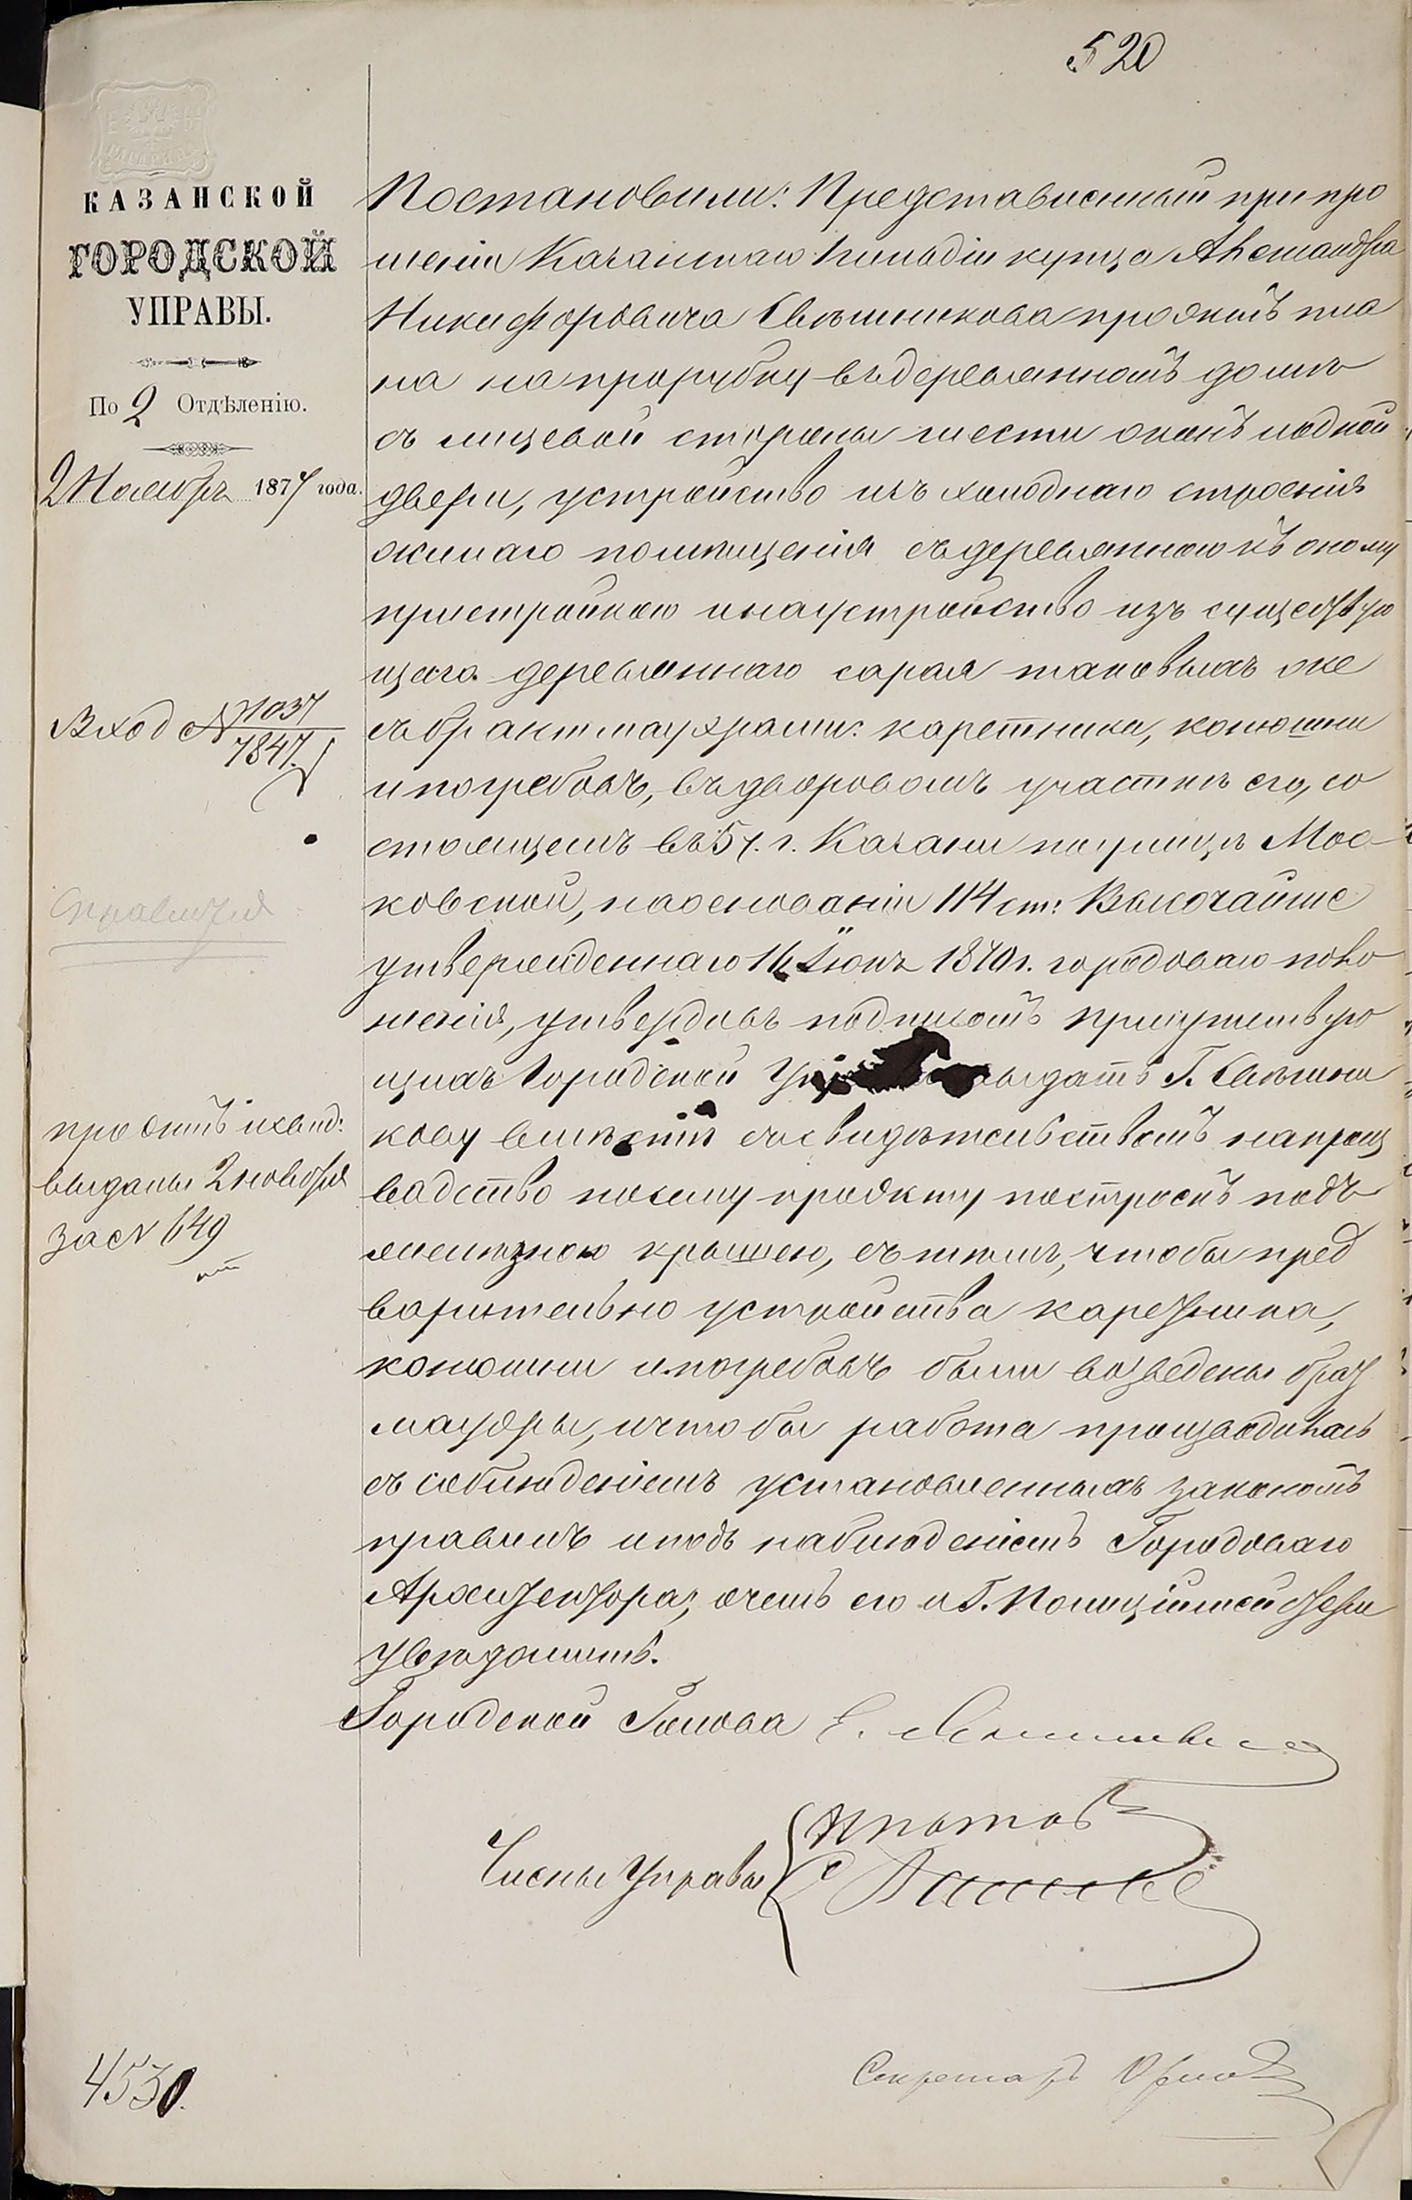 520
КАЗАНСКОЙ
ГОРОДСКОЙ
УПРАВЫ.
По 2 Отдѣленію.
2 Ноября 1877 года.
Вход № 1037
7847.
Справиться
проэктъ и свид:
выданы 2 ноября
за № 649
Постановили: Представленный при про
шеніи Казанскаго гильдіи купца Александра
Никифоровича Свѣшникова проэктъ пла
на на прорубку въ деревянномъ домѣ
съ лицевой стороны шести оконъ и одной
двери, устройство изъ холоднаго строенія
жилаго помѣщенія съ деревянною къ оному
пристройкою и на устройство изъ существую
щаго деревяннаго сарая таковыхъ же
съ брантмаурами: каретника, конюшни
и погребовъ, въ дворовомъ участкѣ его, со
стоящемъ въ 5 ч. г. Казани по улицѣ Мос
ковской, на основаніи 114 ст: Высочайше
утвержденнаго 16 Іюня 1870 г. городоваго поло
женія, утвердивъ подписомъ присутствую
щихъ Городской выдать Г. Свѣшни
кову вмѣстѣ съ свидѣтельствомъ на произ
водство по сему проэкту построекъ подъ
желѣзною крышею, съ тѣмъ, чтобы пред
варительно устройства каретника,
конюшни и погребовъ были возведены бранд
мауэры, и чтобы работа производилась
съ соблюденіемъ установленныхъ закономъ
правилъ и подъ наблюденіемъ Городоваго
Архитектора, о чемъ его и Г. Полиціймейстера
увѣдомить.
Городской Голова Е.
Члены Управы
Секретарь
4530.